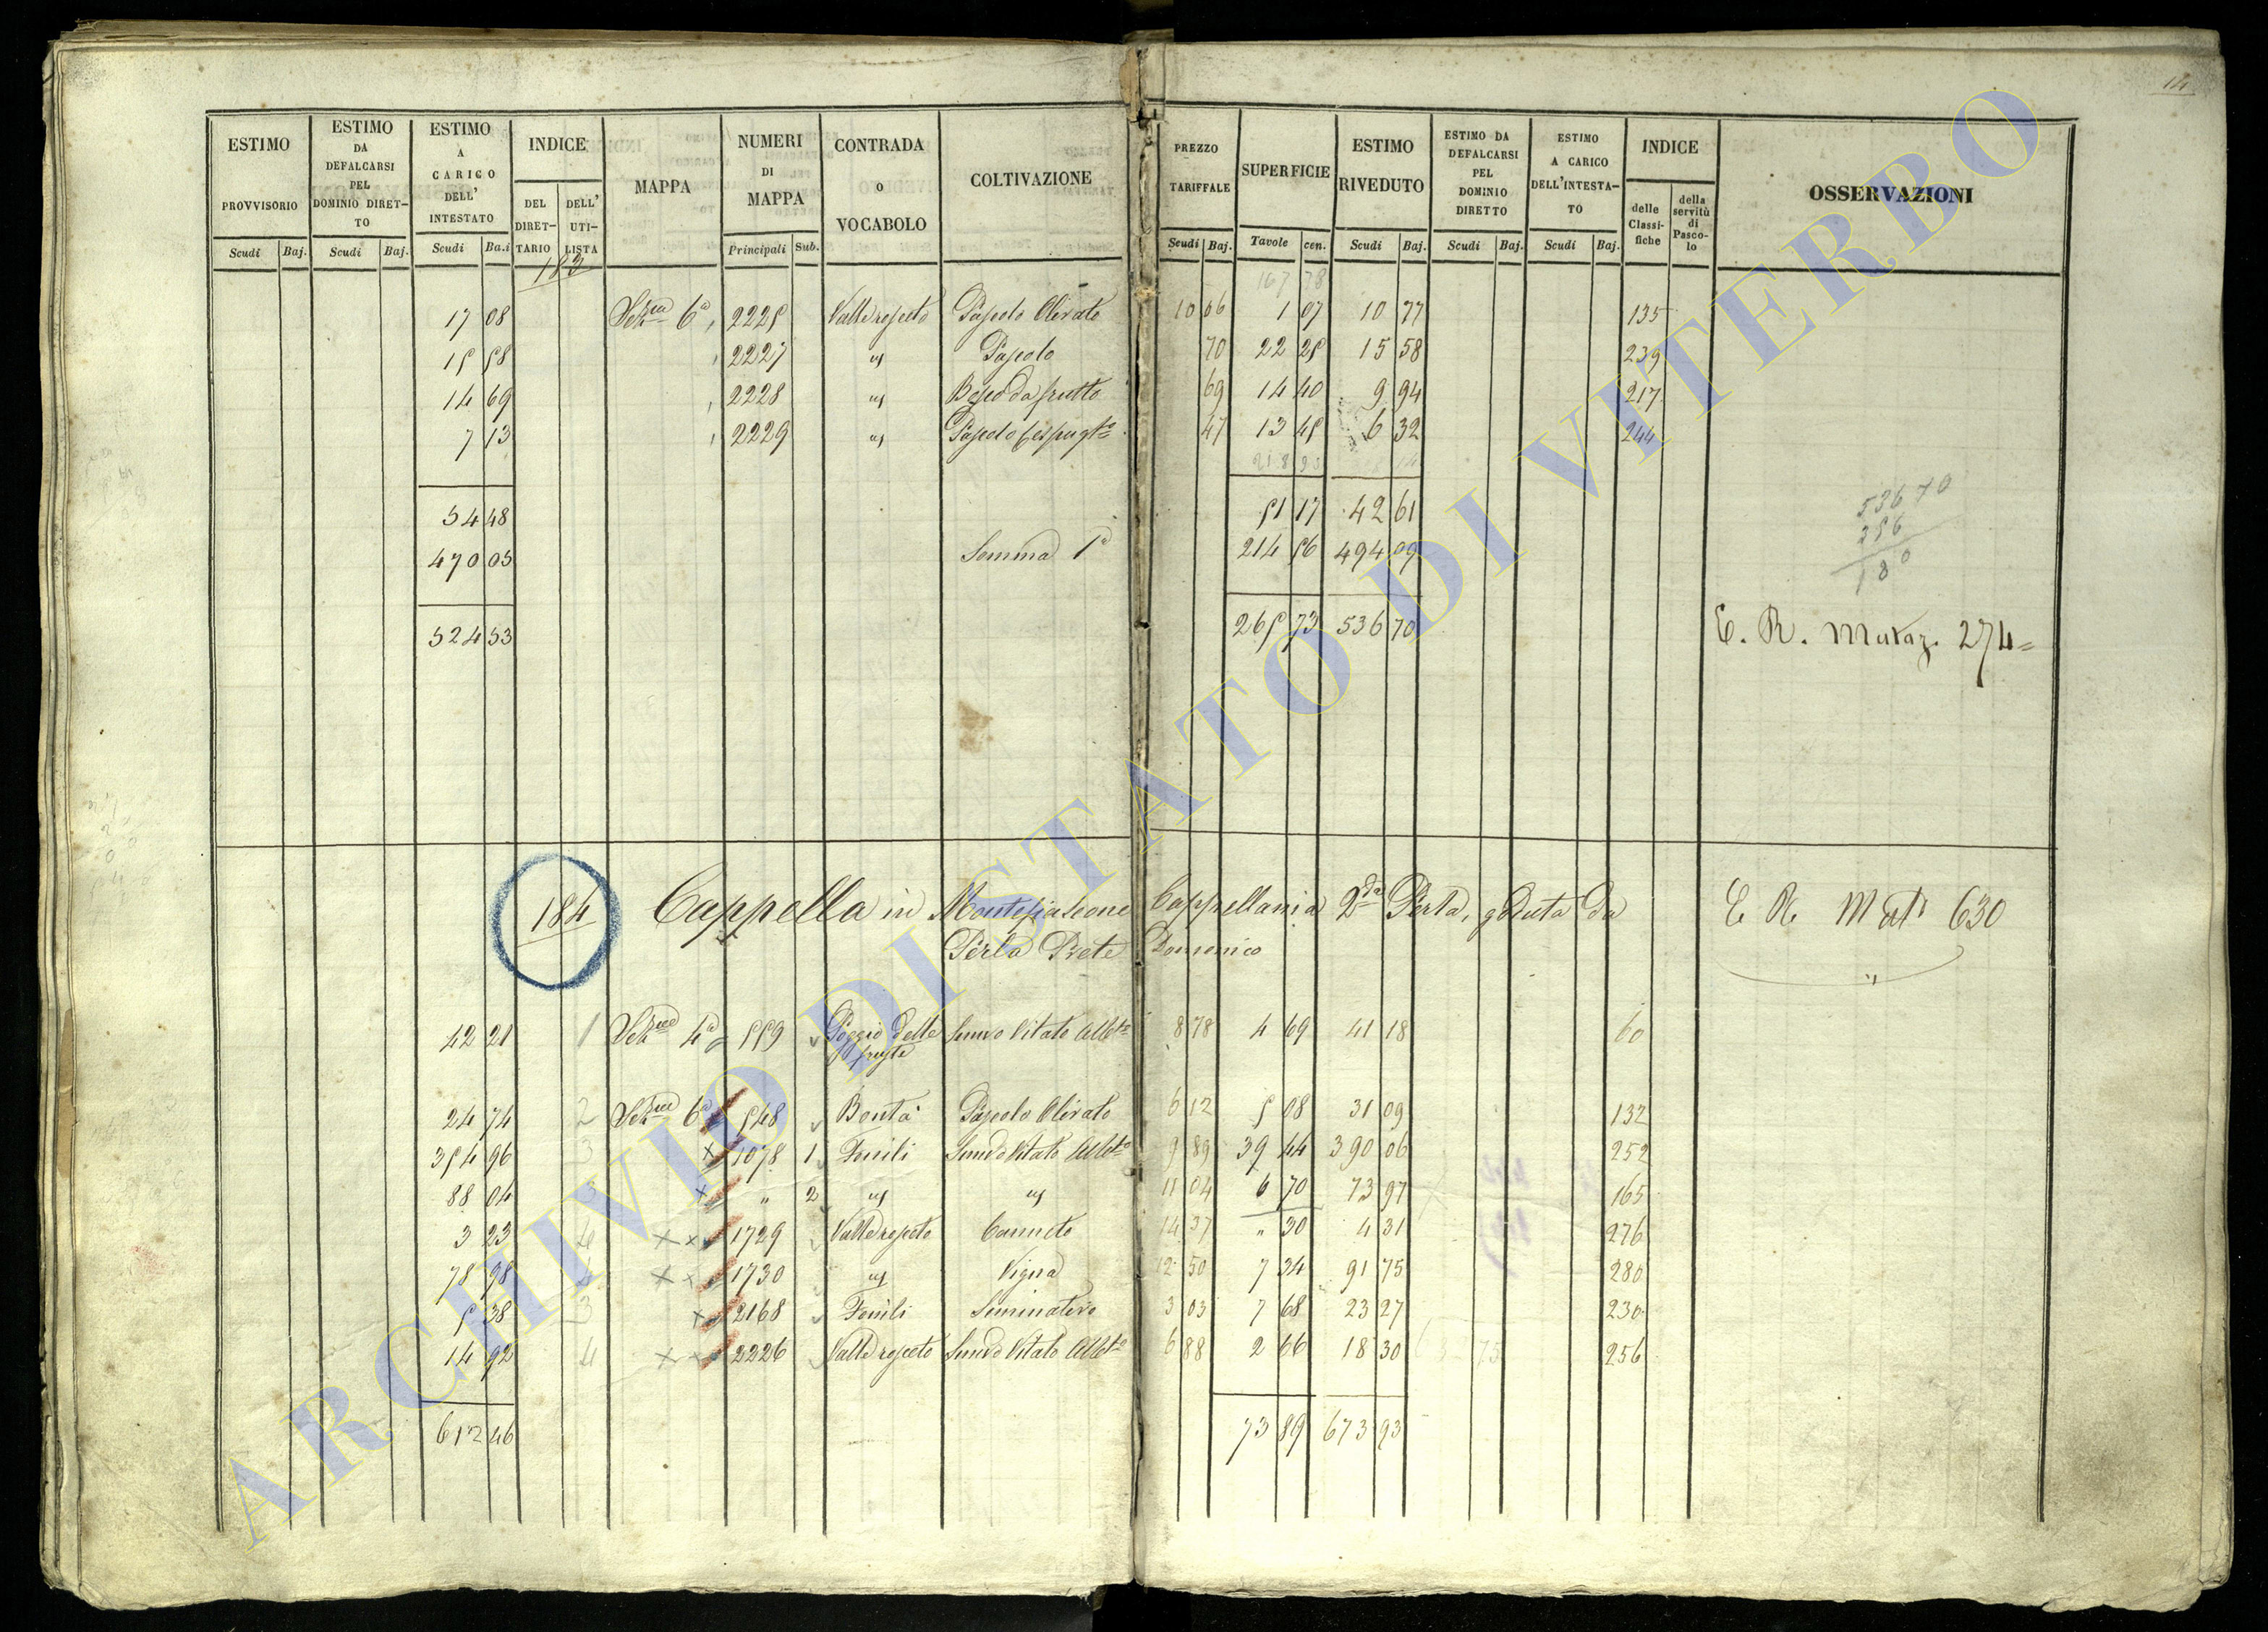 14
ESTIMO PROVVISORIO Scudi Baj.
ESTIMO DA DEFALCARSI PEL DOMINIO DIRET-TO Scudi Baj.
ESTIMO A CARICO DELL' INTESTATO Scudi Ba.i
INDICE DEL DIRET-TARIO DELL' UTI-LISTA
MAPPA
NUMERI DI MAPPA Principali Sub.
CONTRADA O VOCABOLO
COLTIVAZIONE
PREZZO TARIFFALE Scudi Baj.
SUPERFICIE Tavole cen.
ESTIMO RIVEDUTO Scudi Baj.
ESTIMO DA DEFALCARSI PEL DOMINIO DIRETTO Scudi Baj.
ESTIMO A CARICO DELL'INTESTA-TO Scudi Baj.
INDICE delle Classi-fiche della servitù di Pasco-lo
OSSERVAZIONI
183
167 38
17 08 Sezne 6a 2225 Valle rosceto Pascolo Olivato 10 06 1 07 10 77 135
15 58 2227 " Pascolo 70 22 25 15 58 239
14 69 2228 " Bosco da frutto 69 14 40 9 94 217
7 13 2229 " Pascolo Cespugto 47 13 45 6 32 244
218 93
54 48 51 17 42 61
470 05 Somma 1a 214 56 494 09
524 53 265 73 536 70
536 70
356
180
E. R. Mutaz. 274=
184 Cappella in Montefiascone Cappellania 2da Perla, goduta da
Perla Prete Domenico
E R Mut. 630
42 21 1 Sezne 4a 559 Poggio delle fruste Semvo Vitato Albto 8 78 4 69 41 18 60
24 74 2 Sezne 6a 548 Bonta Pascolo Olivato 6 12 5 08 31 09 132
354 96 3 1078 1 Fenili Semvo Vitato Albto 9 89 39 44 390 06 252
88 04 3 " 2 " " 11 04 6 70 73 97 165
3 23 4 1729 Valle rosceto Canneto 14 37 " 30 4 31 276
78 98 4 1730 " Vigna 12 50 7 34 91 75 280
5 38 3 2168 Fenili Seminativo 3 03 7 68 23 27 230
14 92 4 2226 Valle rosceto Semvo Vitato Albto 6 88 2 66 18 30 256
612 46 73 89 673 93
ARCHIVIO DI STATO DI VITERBO